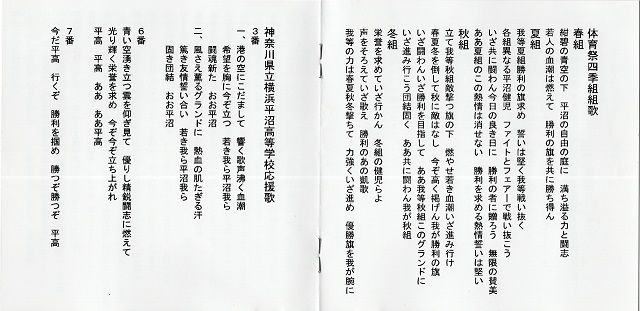 体育祭四季組組歌
春組
紺碧の青空の下　平沼の自由の庭に　満ち溢る力と闘志
若人の血潮は燃えて　勝利の旗を共に勝ち得ん
夏組
我等夏組勝利の旗求め　誓いは堅く我等戦い抜く
各組異なる平沼健児　ファイトとフェアーで戦い抜こう
いざ共に闘わん今日の良き日に　勝利の者に贈ろう　無限の賛美
ああ夏組のこの熱情は消せない　勝利を求める熱情誓いは堅い
秋組
立て我等秋組敵撃つ旗の下　燃やせ若き血潮いざ進み行け
春夏冬を倒して秋に敵はなし　今ぞ高く掲げん我が勝利の旗
いざ闘わんいざ勝利を目指して　ああ我等秋組このグランドに
いざ進み行こう団結固く　ああ共に闘わん我が秋組
冬組
栄誉を求めていざ行かん　冬組の健児らよ
声をそろえていざ歌え　勝利のあの凱歌
我等の力は春夏秋冬撃ちて　力強くいざ進め　優勝旗を我が腕に
神奈川県立横浜平沼高等学校応援歌
３番
一、港の空にこだまして　響く歌声沸く血潮
希望を胸に今ぞ立つ　若き我ら平沼我ら
闘魂新た　おお平沼
二、風さえ薫るグランドに　熱血の肌たぎる汗
篤き友情誓い合い　若き我ら平沼我ら
固き団結　おお平沼
６番
青い空湧き立つ雲を仰ぎ見て　優りし精鋭闘志に燃えて
光り輝く栄誉を求め　今ぞ今ぞ立ち上がれ
平高　平高　ああ　ああ平高
７番
今だ平高　行くぞ　勝利を掴め　勝つぞ勝つぞ　平高